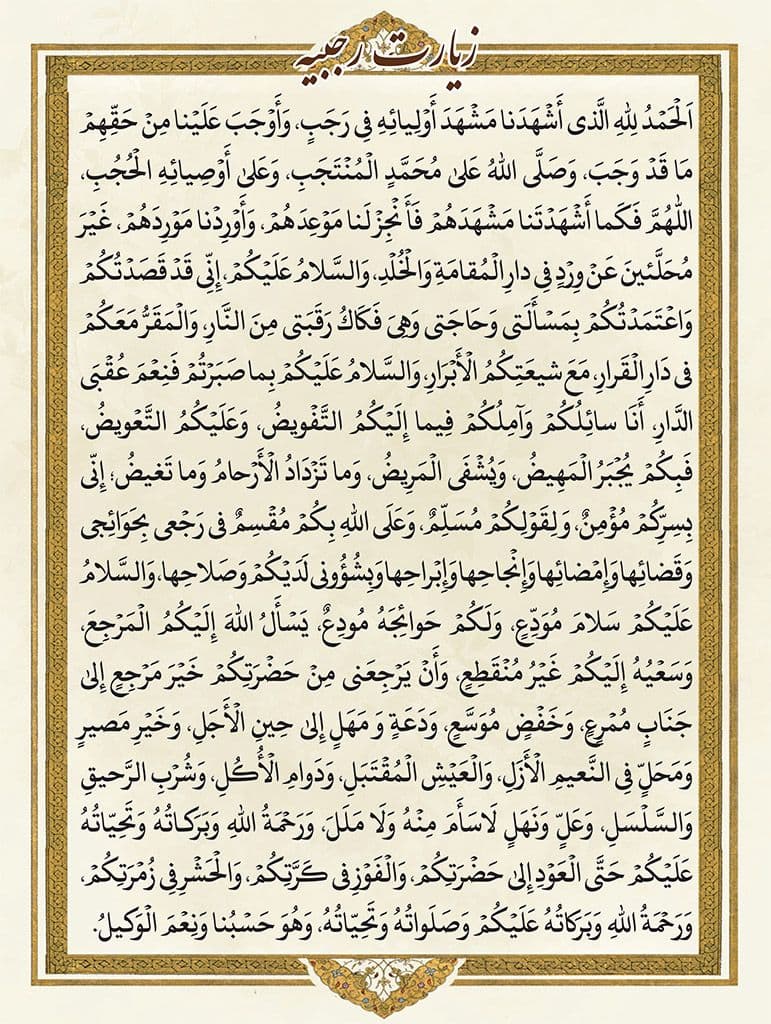 زیارت رجبیه
اَلْحَمْدُ لِلّٰهِ الَّذی أَشْهَدَنا مَشْهَدَ أَوْلِیائِهِ فِی رَجَبٍ، وَأَوْجَبَ عَلَیْنا مِنْ حَقِّهِمْ
مَا قَدْ وَجَبَ، وَصَلَّی اللهُ عَلیٰ مُحَمَّدٍ الْمُنْتَجَبِ، وَعَلیٰ أَوْصِیائِهِ الْحُجُبِ،
اللّٰهُمَّ فَکَما أَشْهَدْتَنا مَشْهَدَهُمْ فَأَنْجِزْ لَنا مَوْعِدَهُمْ، وَأَوْرِدْنا مَوْرِدَهُمْ، غَیْرَ
مُحَلَّئینَ عَنْ وِرْدٍ فِی دارِ الْمُقامَةِ وَالْخُلْدِ، وَالسَّلامُ عَلَیْکُمْ، إِنِّی قَدْ قَصَدْتُکُمْ
وَاعْتَمَدْتُکُمْ بِمَسْأَلَتی وَحَاجَتی وَهِیَ فَکَاکُ رَقَبَتی مِنَ النَّارِ، وَالْمَقَرُّ مَعَکُمْ
فی دَارِ الْقَرارِ، مَعَ شیعَتِکُمُ الْأَبْرَارِ، وَالسَّلامُ عَلَیْکُمْ بِما صَبَرْتُمْ فَنِعْمَ عُقْبَی
الدَّارِ، أَنَا سائِلُکُمْ وَآمِلُکُمْ فِیما إِلَیْکُمُ التَّفْویضُ، وَعَلَیْکُمُ التَّعْویضُ،
فَبِکُمْ یُجْبَرُ الْمَهِیضُ، وَیُشْفَی الْمَرِیضُ، وَما تَزْدَادُ الْأَرْحامُ وَما تَغیضُ؛ إِنِّی
بِسِرِّکُمْ مُؤْمِنٌ، وَ لِقَوْلِکُمْ مُسَلِّمٌ، وَعَلَی اللهِ بِکُمْ مُقْسِمٌ فی رَجْعی بِحَوَائِجی
وَقَضائِها وَإِمْضائِها وَإِنْجاحِها وَإِبْراحِها وَبِشُؤُونی لَدَیْکُمْ وَصَلاحِها، وَالسَّلامُ
عَلَیْکُمْ سَلامَ مُوَدِّعٍ، وَلَکُمْ حَوائِجَهُ مُودِعٌ، یَسْأَلُ اللهَ إِلَیْکُمُ الْمَرْجِعَ،
وَسَعْیُهُ إِلَیْکُمْ غَیْرُ مُنْقَطِعٍ، وَأَنْ یَرْجِعَنی مِنْ حَضْرَتِکُمْ خَیْرَ مَرْجِعٍ إِلیٰ
جَنَابٍ مُمْرِعٍ، وَخَفْضٍ مُوَسَّعٍ، وَدَعَةٍ وَ مَهَلٍ إِلیٰ حِینِ الْأَجَلِ، وَخَیْرِ مَصیرٍ
وَمَحَلٍّ فِی النَّعیمِ الْأَزَلِ، وَالْعَیْشِ الْمُقْتَبَلِ، وَدَوامِ الْأُکُلِ، وَشُرْبِ الرَّحیقِ
وَالسَّلْسَلِ، وَعَلٍّ وَنَهَلٍ لَاسَأَمَ مِنْهُ وَلَا مَلَلَ، وَرَحْمَةُ اللهِ وَبَرَکاتُهُ وَتَحِیّاتُهُ
عَلَیْکُمْ حَتَّی الْعَوْدِ إِلیٰ حَضْرَتِکُمْ، وَالْفَوْزِ فی کَرَّتِکُمْ، وَالْحَشْرِ فِی زُمْرَتِکُمْ،
وَرَحْمَةُ اللهِ وَبَرَکاتُهُ عَلَیْکُمْ وَصَلَواتُهُ وَتَحِیّاتُهُ، وَهُوَ حَسْبُنا وَنِعْمَ الْوَکیلُ.